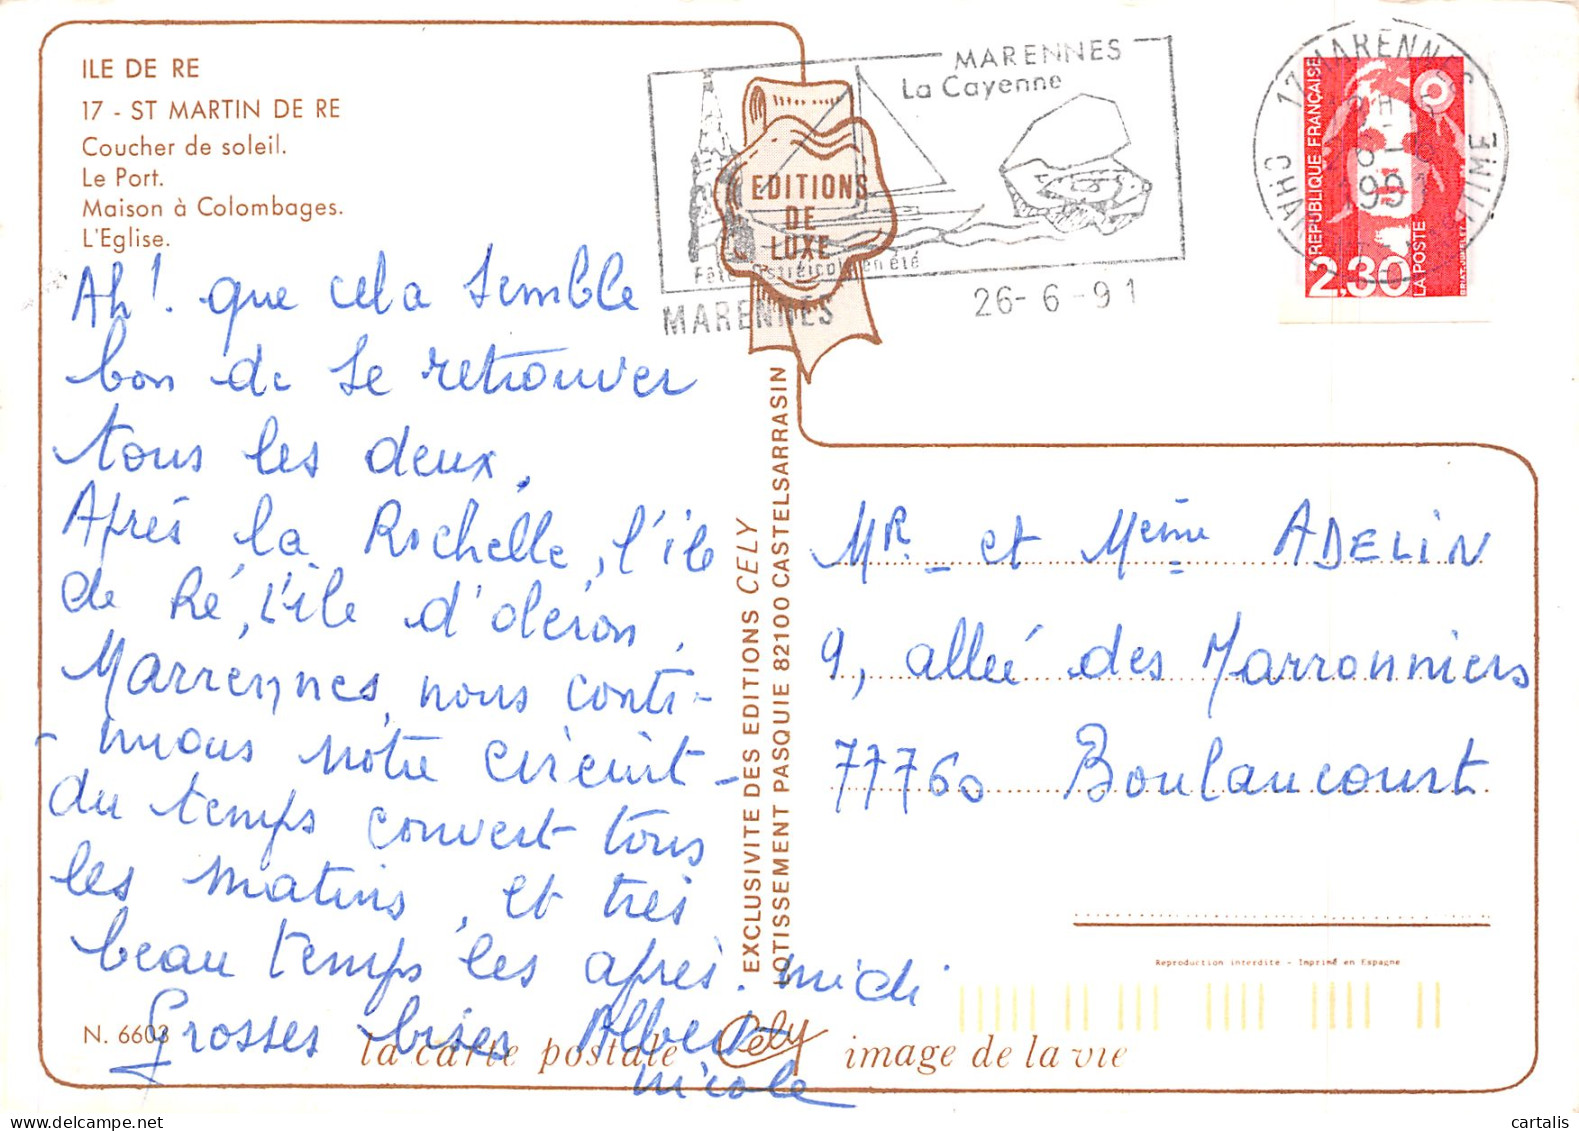 ILE DE RE
17 - ST MARTIN DE RE
Coucher de soleil.
Le Port.
Maison à Colombages.
L'Eglise.
Ah! que cela semble
bon de se retrouver
tous les deux.
Après la Rochelle, l'île
de Ré, l'île d'oléron,
Marrennes, nous conti-
- nuons notre circuit -
du temps couvert tous
les matins, et très
beau temps les après-midi
Grosses bises Albert
Nicole
N. 6603
la carte postale Cely image de la vie
EDITIONS
DE
LUXE
MARENNES
La Cayenne
Fête Ostréicole en été
MARENNES
26-6-91
17 MARENNES
CHARENTE MARITIME
1991
REPUBLIQUE FRANÇAISE
2,30
LA POSTE
EXCLUSIVITE DES EDITIONS CELY
LOTISSEMENT PASQUIE 82100 CASTELSARRASIN
MR. et Mème ADELIN
9, allée des Marronniers
77760 Boulancourt
Reproduction interdite - Imprimé en Espagne
cartalis.com